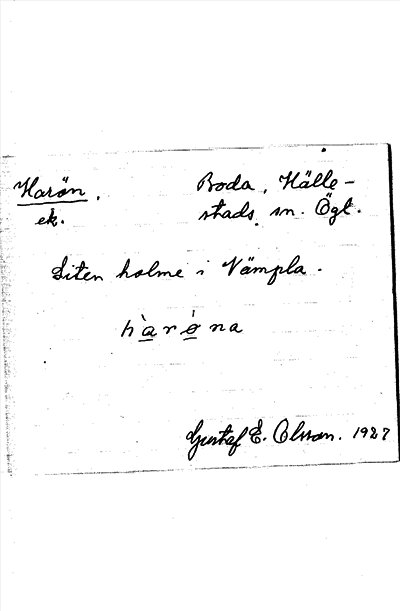 Harön. Boda, Hälle-
ek. stads sn. Ögl.
Liten holme i Vämpla.
hàrǿna
Gustaf E. Olsson. 1927